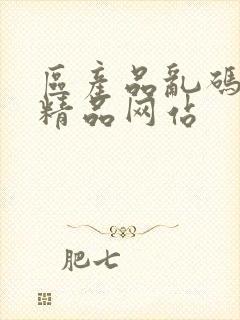 区產品亂碼
精品网佔
肥七